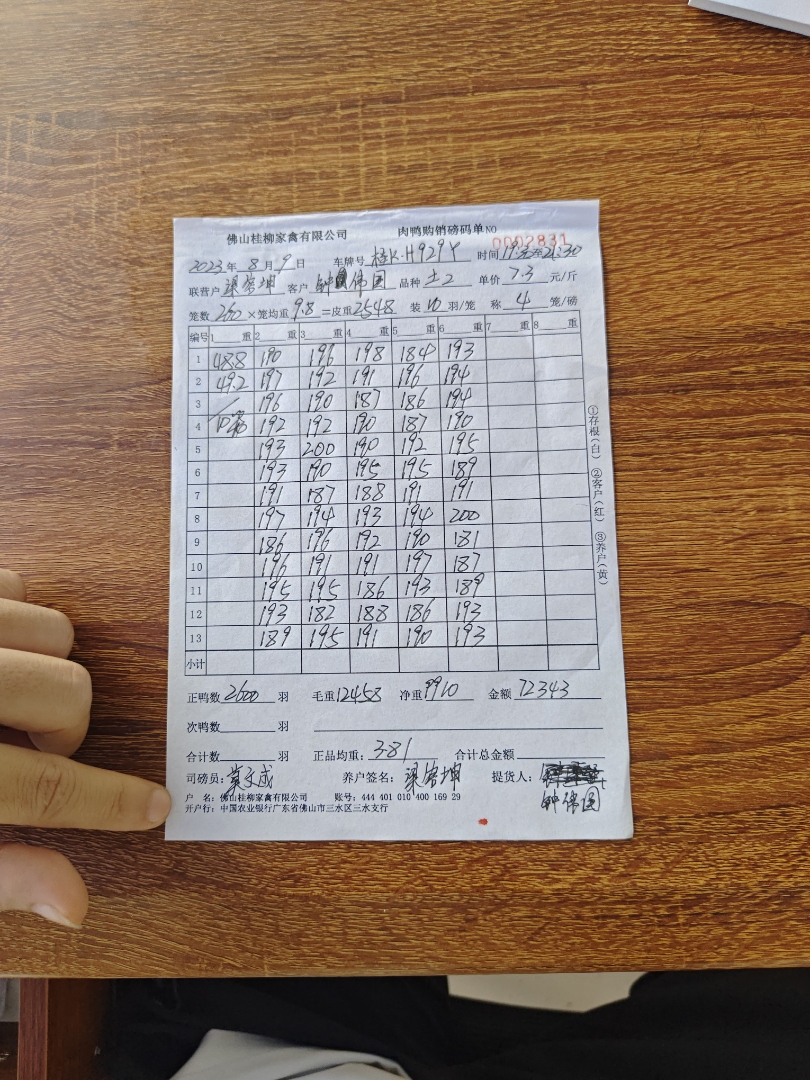 佛山桂柳家禽有限公司 肉鸭购销磅码单 NO 0002831
2023年 8月 9日 车牌号 桂K·H929Y 时间 至21:30
联营户 梁 坤 客户 钟伟国 品种 土2 单价 7.3 元/斤
笼数 260 ×笼均重 9.8 =皮重 2548 装 10 羽/笼 称 4 笼/磅
编号 1 重 2 重 3 重 4 重 5 重 6 重 7 重 8 重
1 48.8 190 196 198 184 193
2 49.2 197 192 191 196 194
3 196 190 187 186 194
4 10笼 192 192 190 187 190
5 193 200 190 192 195
6 193 190 195 195 189
7 191 187 188 191 191
8 197 194 193 194 200
9 186 196 192 190 181
10 196 191 191 197 187
11 195 195 186 193 189
12 193 182 188 186 193
13 189 195 191 190 193
小计
正鸭数 2600 羽 毛重 12458 净重 9910 金额 72343
次鸭数 羽
合计数 羽 正品均重: 3.81 合计总金额
司磅员: 成 养户签名: 梁 坤 提货人:
钟伟国
户 名: 佛山桂柳家禽有限公司 账号: 444 401 010 400 169 29
开户行: 中国农业银行广东省佛山市三水区三水支行
①存根(白) ②客户(红) ③养户(黄)